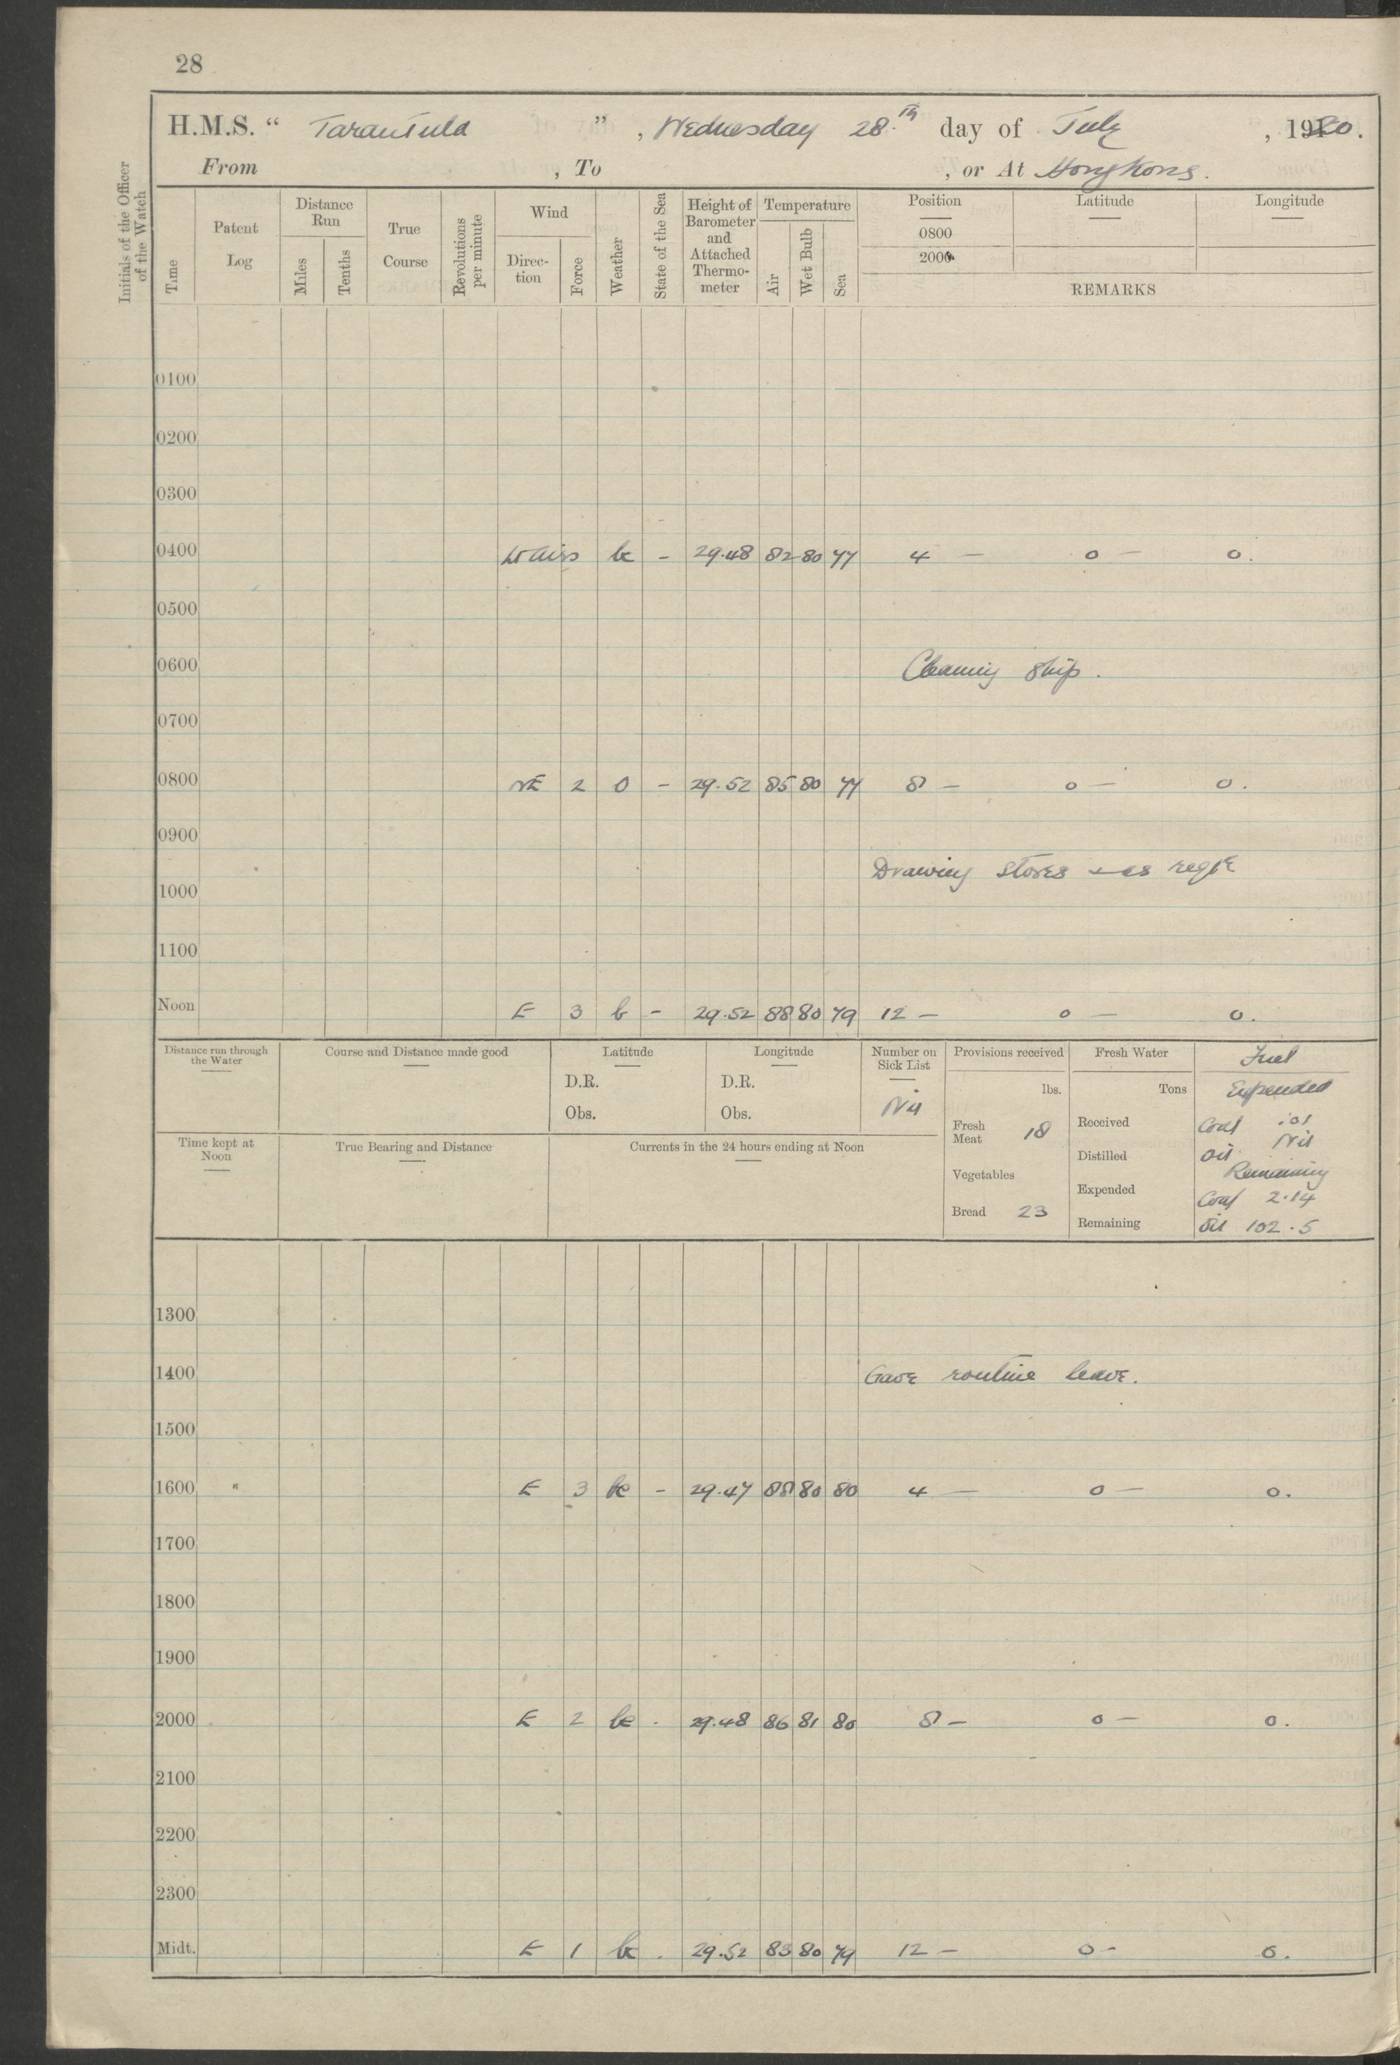 28
H.M.S. “ Tarantula ” , Wednesday 28.th day of July , 1920.
From , To , or At Hong Kong.
Initials of the Officer of the Watch
Time
Patent Log
Distance Run
Miles
Tenths
True Course
Revolutions per minute
Wind
Direction
Force
Weather
State of the Sea
Height of Barometer and Attached Thermometer
Temperature
Air
Wet Bulb
Sea
Position
0800
2000
Latitude
Longitude
REMARKS
0100
0200
0300
0400 Lt airs bc - 29.48 82 80 77 4 — 0 — 0.
0500
0600 Cleaning Ship.
0700
0800 NE 2 O - 29.52 85 80 77 8 — 0 — 0.
0900
Drawing Stores as
1000
1100
Noon E 3 b - 29.52 88 80 79 12 — 0 — 0.
Distance run through the Water
Course and Distance made good
Latitude
D.R.
Obs.
Longitude
D.R.
Obs.
Number on Sick List
Nil
Provisions received
lbs.
Fresh Meat 18
Vegetables
Bread 23
Fresh Water
Tons
Received
Distilled
Expended
Remaining
Fuel
Expended
Coal .01
Oil Nil
Remaining
Coal 2.14
Oil 102.5
Time kept at Noon
True Bearing and Distance
Currents in the 24 hours ending at Noon
1300
1400 Gave routine leave.
1500
1600 E 3 bc - 29.47 88 80 80 4 — 0 — 0.
1700
1800
1900
2000 E 2 bc . 29.48 86 81 80 8 — 0 — 0.
2100
2200
2300
Midt. E 1 bc . 29.52 83 80 79 12 — 0 - 0.